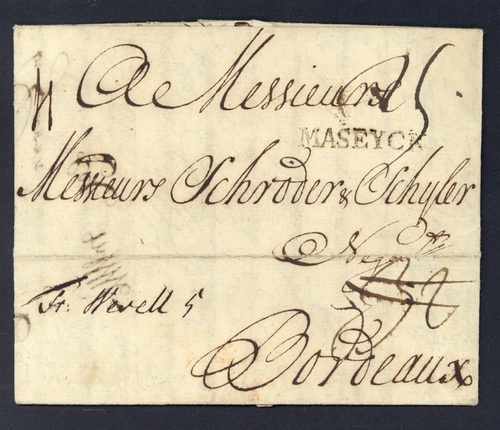 A Messieurs
MASEYCK
Messieurs Schröder & Schyler
Negts
Fr: Wesell 5
Bordeaux